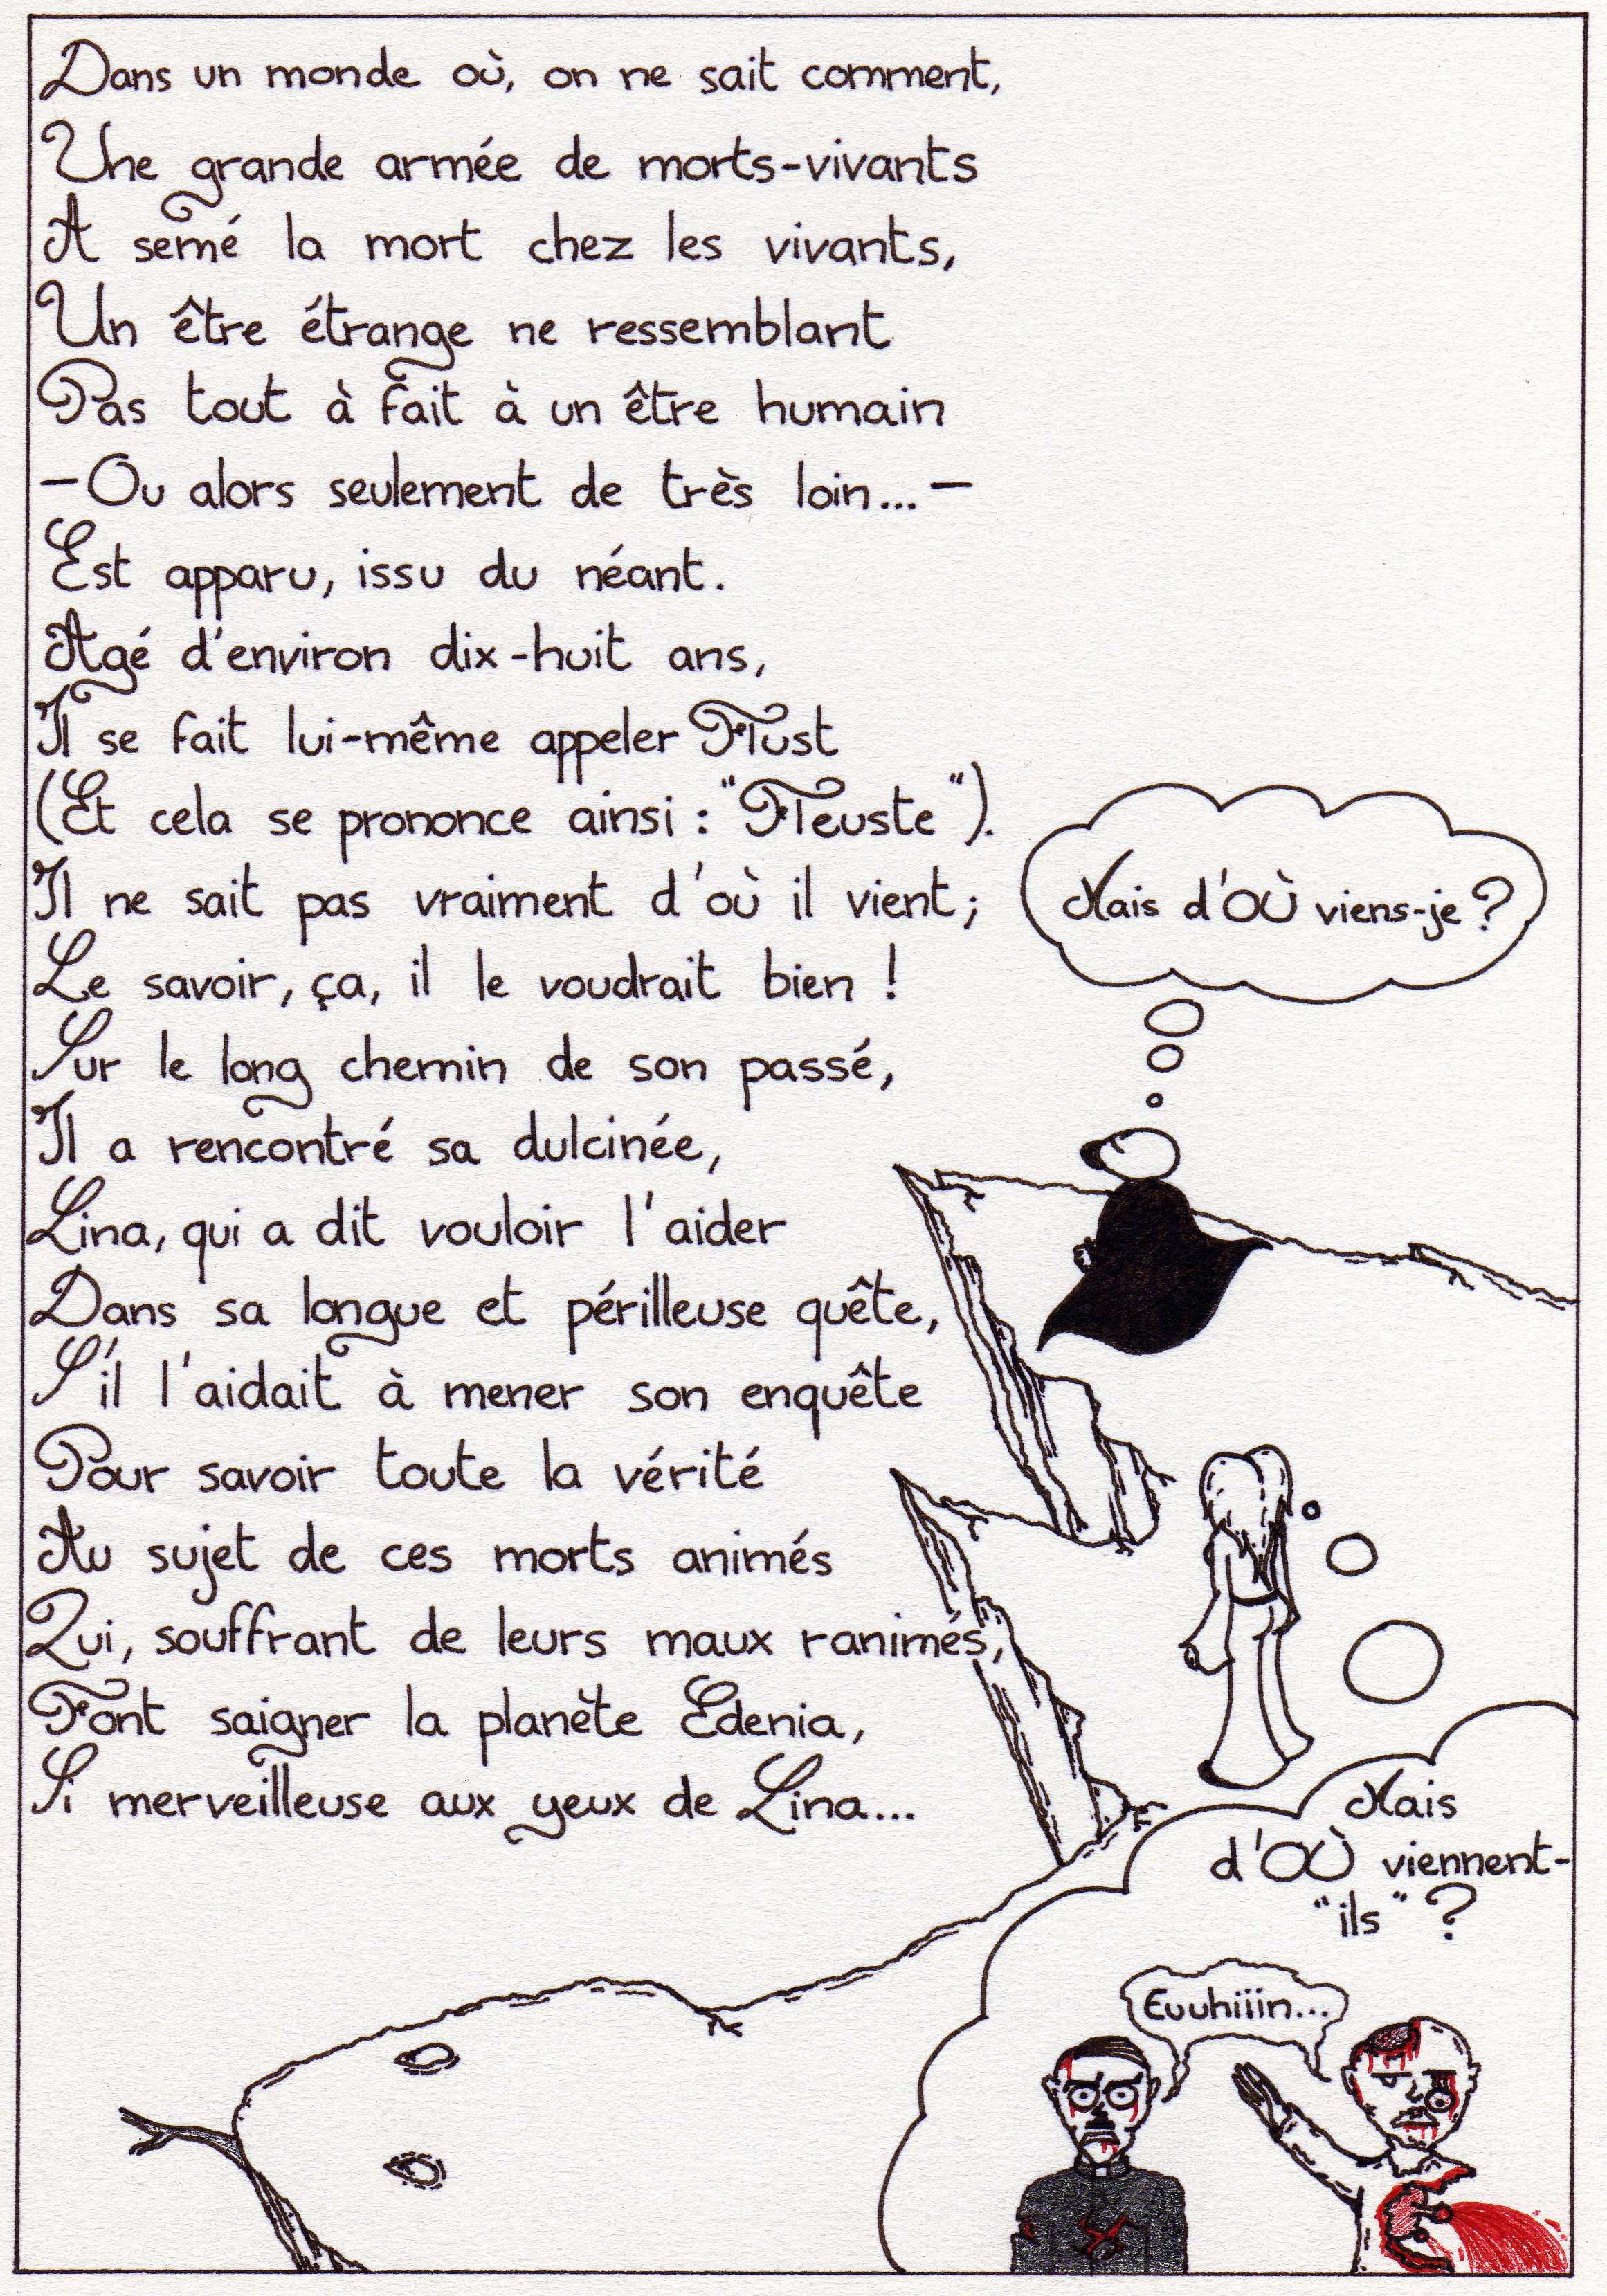 Dans un monde où, on ne sait comment,
Une grande armée de morts-vivants
A semé la mort chez les vivants,
Un être étrange ne ressemblant
Pas tout à fait à un être humain
—Ou alors seulement de très loin...—
Est apparu, issu du néant.
Agé d'environ dix-huit ans,
Il se fait lui-même appeler Flust
(Et cela se prononce ainsi : "Fleuste").
Il ne sait pas vraiment d'où il vient;
Le savoir, ça, il le voudrait bien !
Sur le long chemin de son passé,
Il a rencontré sa dulcinée,
Lina, qui a dit vouloir l'aider
Dans sa longue et périlleuse quête,
S'il l'aidait à mener son enquête
Pour savoir toute la vérité
Au sujet de ces morts animés
Qui, souffrant de leurs maux ranimés,
Font saigner la planète Edenia,
Si merveilleuse aux yeux de Lina...
Mais d'OÙ viens-je ?
Mais
d'OÙ viennent-
"ils" ?
Euuhiiin...